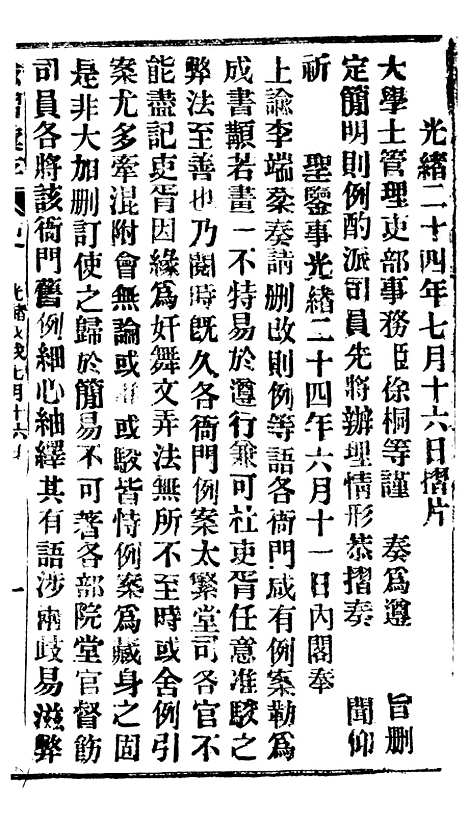 光緒二十四年七月十六日摺片
大學士管理吏部事務臣徐桐等謹　奏爲遵　旨删
定簡明則例酌派司員先將辦理情形恭摺奏　聞仰
祈　聖鑒事光緒二十四年六月十一日內閣奉
上諭李端棻奏請刪改則例等語各衙門咸有例案勒爲
成書顯若畫一不特易於遵行兼可杜吏胥任意准駮之
弊法至善也乃閱時旣久各衙門例案太繁堂司各官不
能盡記吏胥因緣爲奸舞文弄法無所不至時或舍例引
案尤多牽混附會無論或準或駮皆恃例案爲藏身之固
是非大加刪訂使之歸於簡易不可著各部院堂官督飭
司員各將該衙門舊例細心紬繹其有語涉兩歧易滋弊
光緒戊戌七月十六日
一